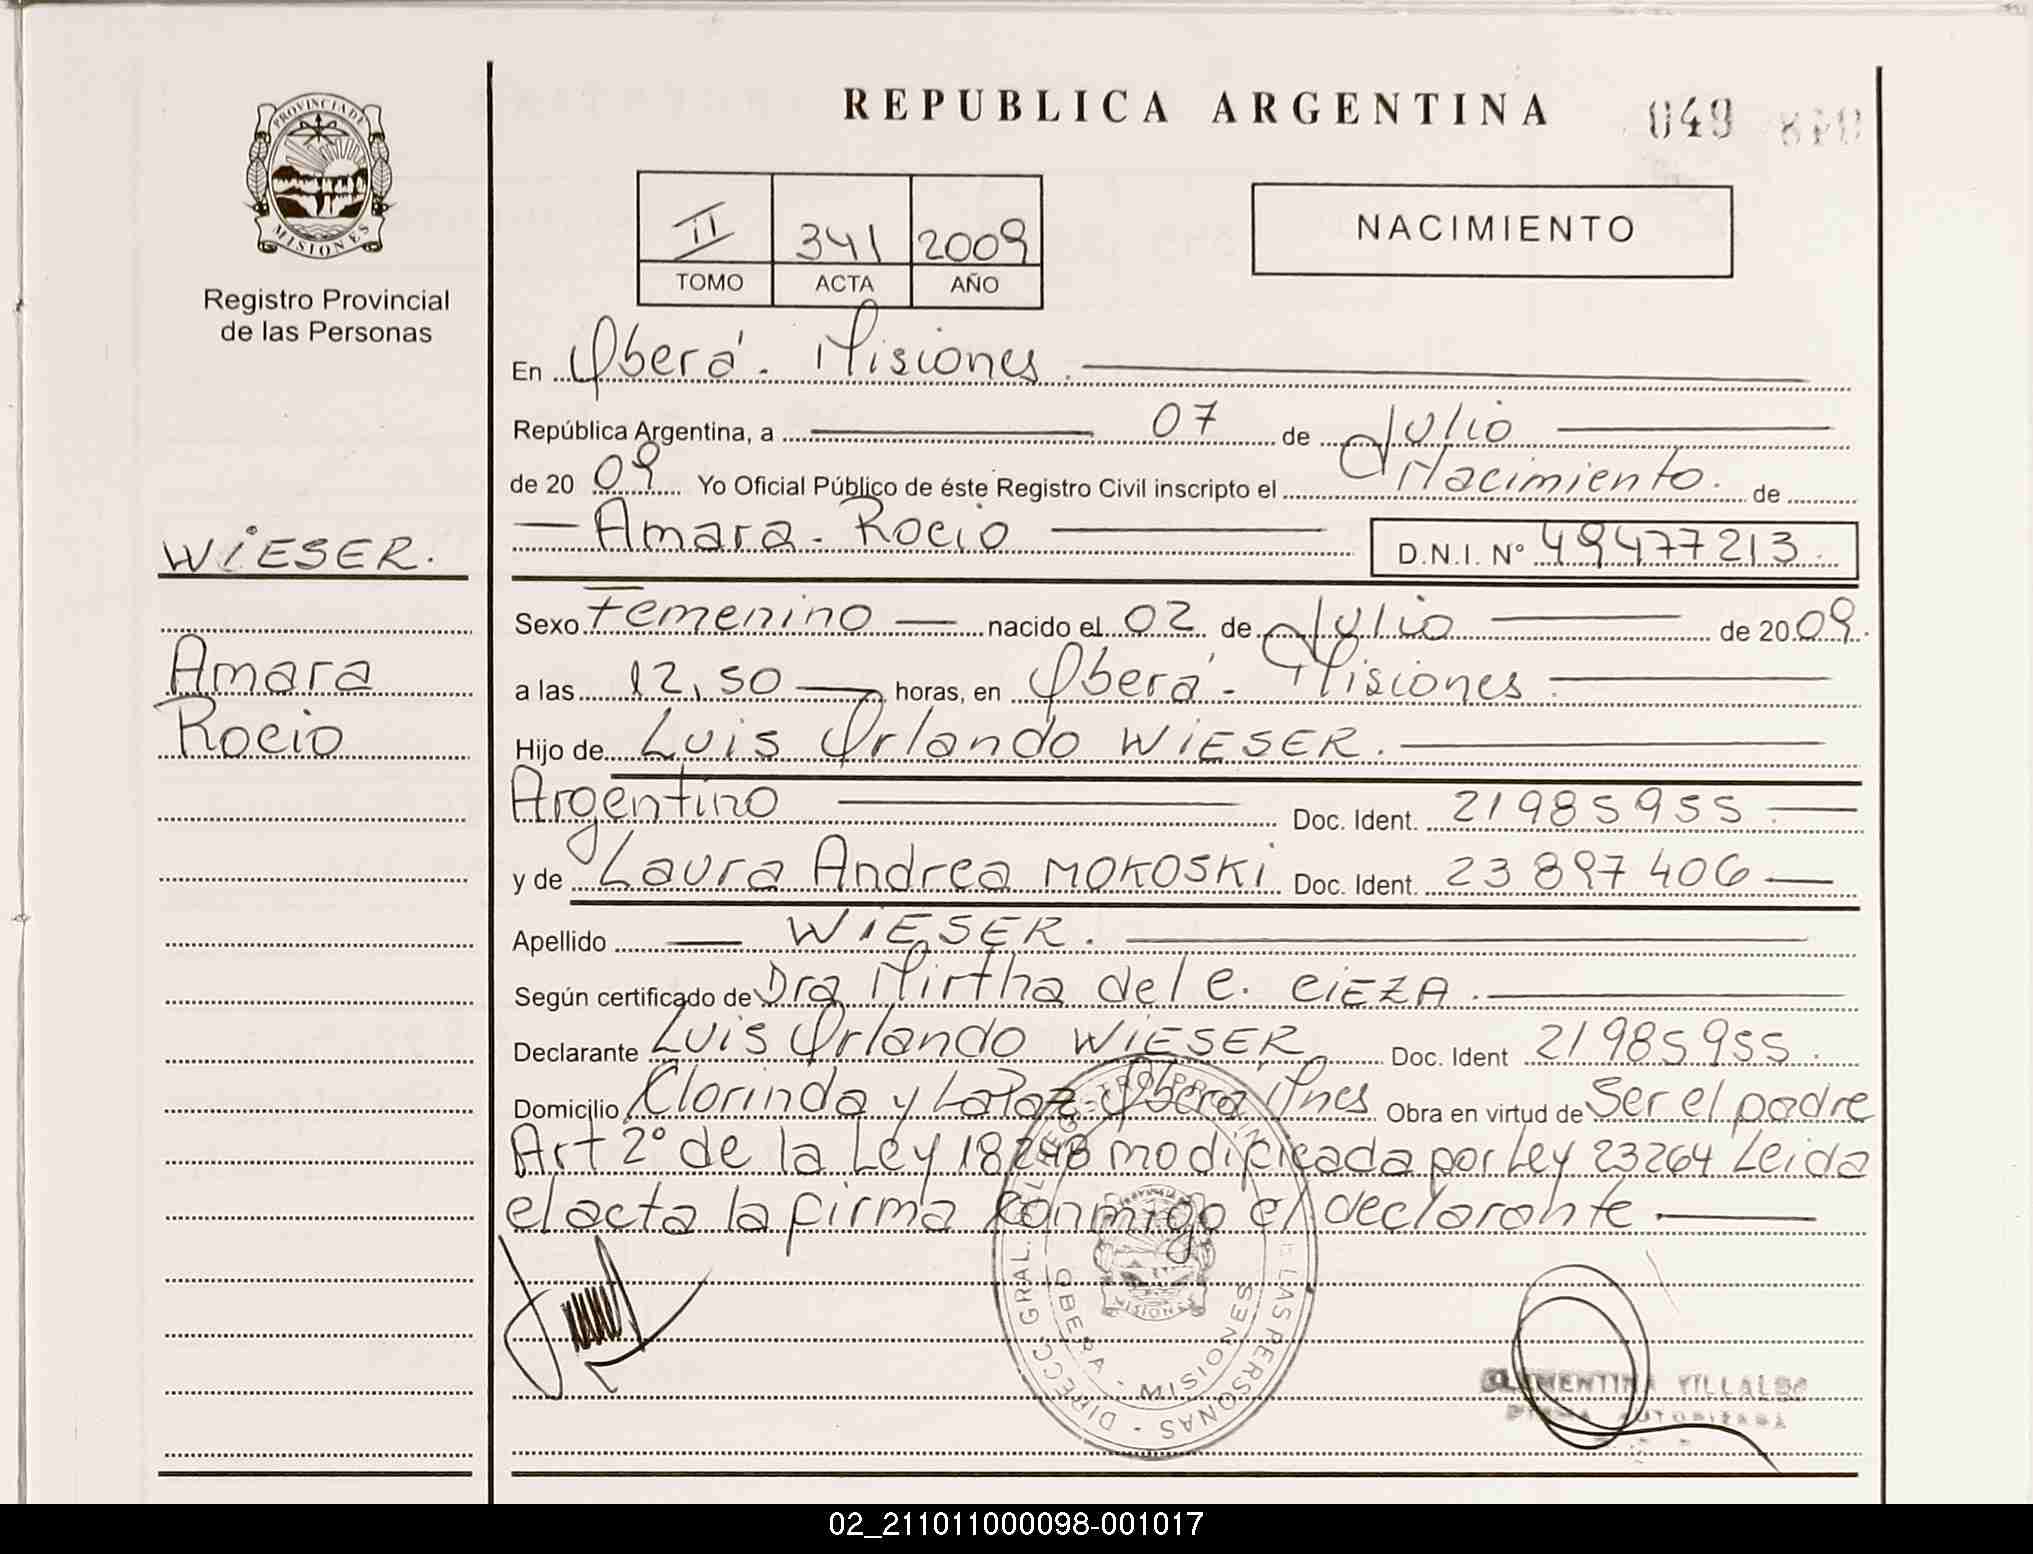 REPUBLICA ARGENTINA
049
PROVINCIA DE
MISIONES
Registro Provincial
de las Personas
II 341 2009
TOMO ACTA AÑO
NACIMIENTO
En Oberá - Misiones.
República Argentina, a 07 de Julio
de 2009 Yo Oficial Público de éste Registro Civil inscripto el Nacimiento. de
Amara - Rocio D.N.I. Nº 49477213.
WiESER.
Amara
Rocio
Sexo Femenino nacido el 02 de Julio de 2009.
a las 12,50 horas, en Oberá - Misiones
Hijo de Luis Orlando WiESER.
Argentino Doc. Ident. 21985955
y de Laura Andrea MOKOSKi Doc. Ident. 23897406
Apellido WIESER.
Según certificado de Dra Mirtha del C. CiEZA.
Declarante Luis Orlando WiESER Doc. Ident 21985955.
Domicilio Clorinda y La Paz - Oberá Mnes Obra en virtud de Ser el padre
Art 2º de la Ley 18248 modificada por Ley 23264 Leida
el acta la firma conmigo el declarante
DIRECC. GRAL. DEL REGISTRO PROVINCIAL DE LAS PERSONAS
OBERA - MISIONES
CLEMENTINA VILLALBO
FIRMA AUTORIZADA
02_211011000098-001017